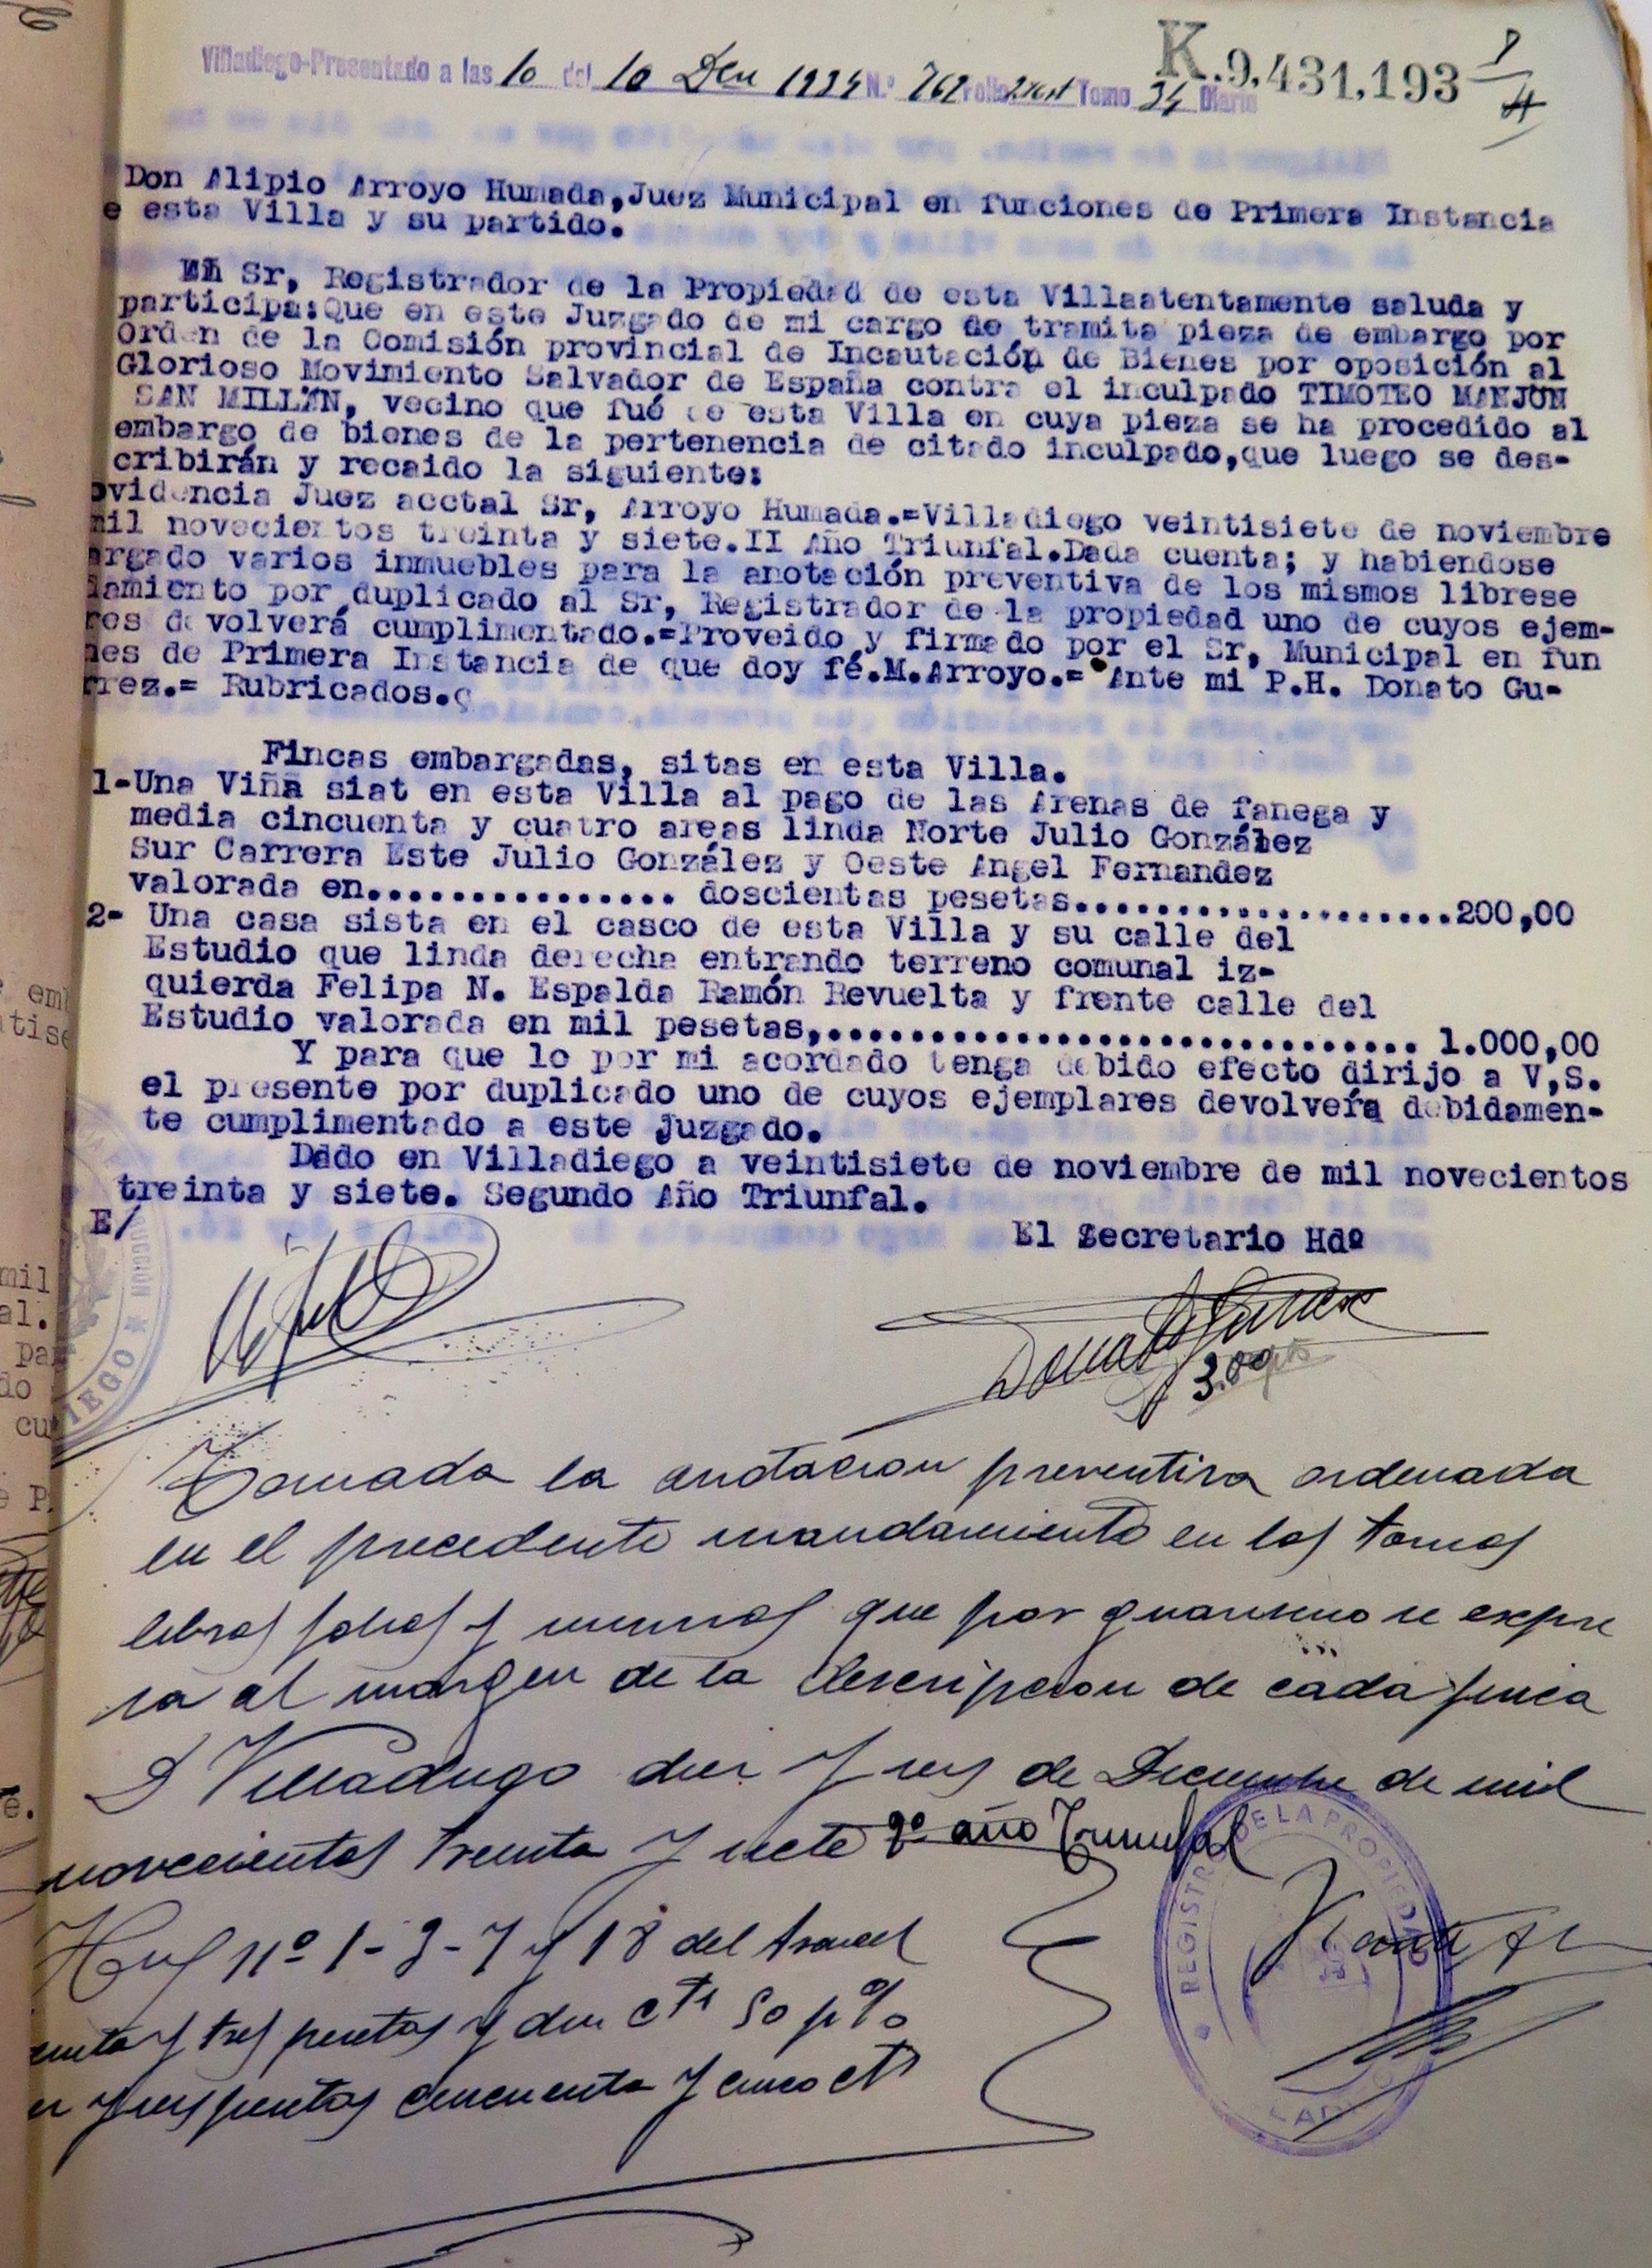 K.9,431,193
Villadiego-Presentado a las 10 del 10 1934 N.º 762 folio Tomo 34 Diario
Don Alipio Arroyo Humada,Juez Municipal en funciones de Primera Instancia
e esta Villa y su partido.
Sr, Registrador de la Propiedad de esta Villaatentamente saluda y
participa:Que en este Juzgado de mi cargo de tramita pieza de embargo por
Orden de la Comisión provincial de Incautación de Bienes por oposición al
Glorioso Movimiento Salvador de España contra el inculpado TIMOTEO MANJON
SAN MILLAN, vecino que fué de esta Villa en cuya pieza se ha procedido al
embargo de bienes de la pertenencia de citado inculpado,que luego se des-
cribirán y recaido la siguiente:
ovidencia Juez acctal Sr, Arroyo Humada.=Villadiego veintisiete de noviembre
mil novecientos treinta y siete.II Año Triunfal.Dada cuenta; y habiendose
argado varios inmuebles para la anotación preventiva de los mismos librese
damiento por duplicado al Sr, Registrador de la propiedad uno de cuyos ejem-
res devolverá cumplimentado.=Proveido y firmado por el Sr, Municipal en fun
nes de Primera Instancia de que doy fé.M.Arroyo.= Ante mi P.H. Donato Gu-
rrez.= Rubricados.
Fincas embargadas, sitas en esta Villa.
1-Una Viña siat en esta Villa al pago de las Arenas de fanega y
media cincuenta y cuatro areas linda Norte Julio González
Sur Carrera Este Julio González y Oeste Angel Fernandez
valorada en............... doscientas pesetas...................200,00
2- Una casa sista en el casco de esta Villa y su calle del
Estudio que linda derecha entrando terreno comunal iz-
quierda Felipa N. Espalda Ramón Revuelta y frente calle del
Estudio valorada en mil pesetas,.............................. 1.000,00
Y para que lo por mi acordado tenga debido efecto dirijo a V,S.
el presente por duplicado uno de cuyos ejemplares devolvera debidamen-
te cumplimentado a este Juzgado.
Dado en Villadiego a veintisiete de noviembre de mil novecientos
treinta y siete. Segundo Año Triunfal.
E/
El Secretario Hdº
Tomada la anotacion preventiva ordenada
en el precedente mandamiento en los tomos
libros folios y numeros que por guarismo se expre
sa al margen de la descripcion de cada finca
Villadiego diez y seis de Diciembre de mil
novecientos treinta y siete 2º año Triunfal
Hon nº 1-3-7 y 18 del Arancel
y tres pesetas y diez cts 50 p%
y seis pesetas cincuenta y cinco cts
REGISTRO DE LA PROPIEDAD